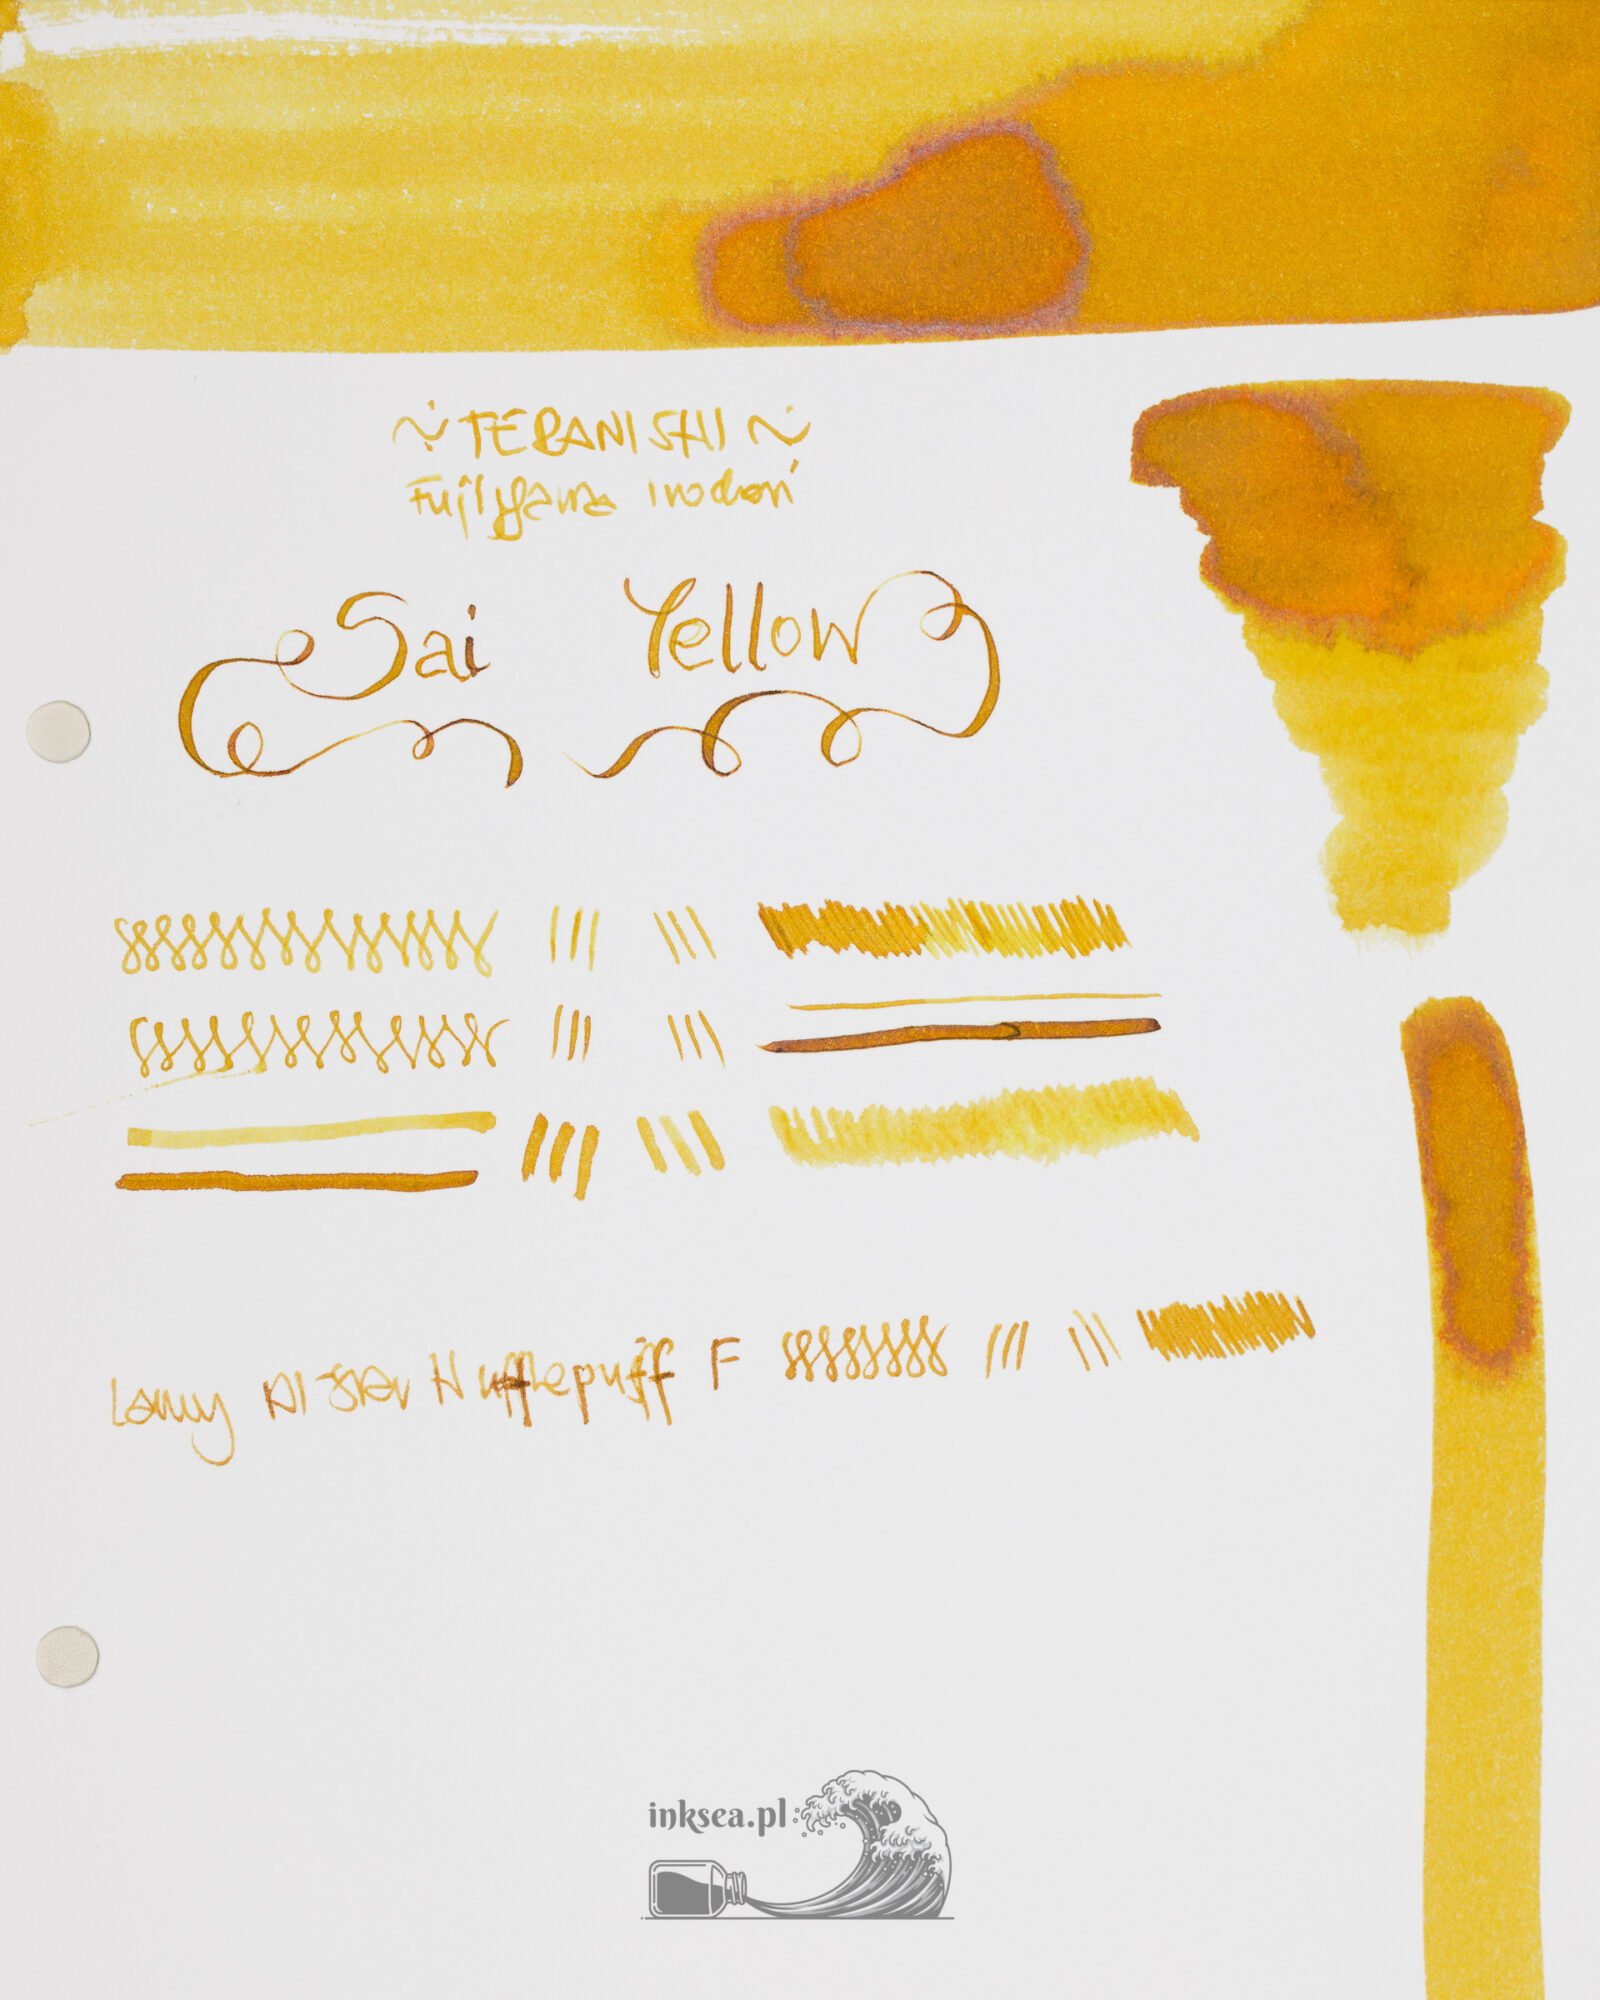 ~ TERANISHI ~
Fujiyama irodori
Sai Yellow
Lamy Hufflepuff F
inksea.pl